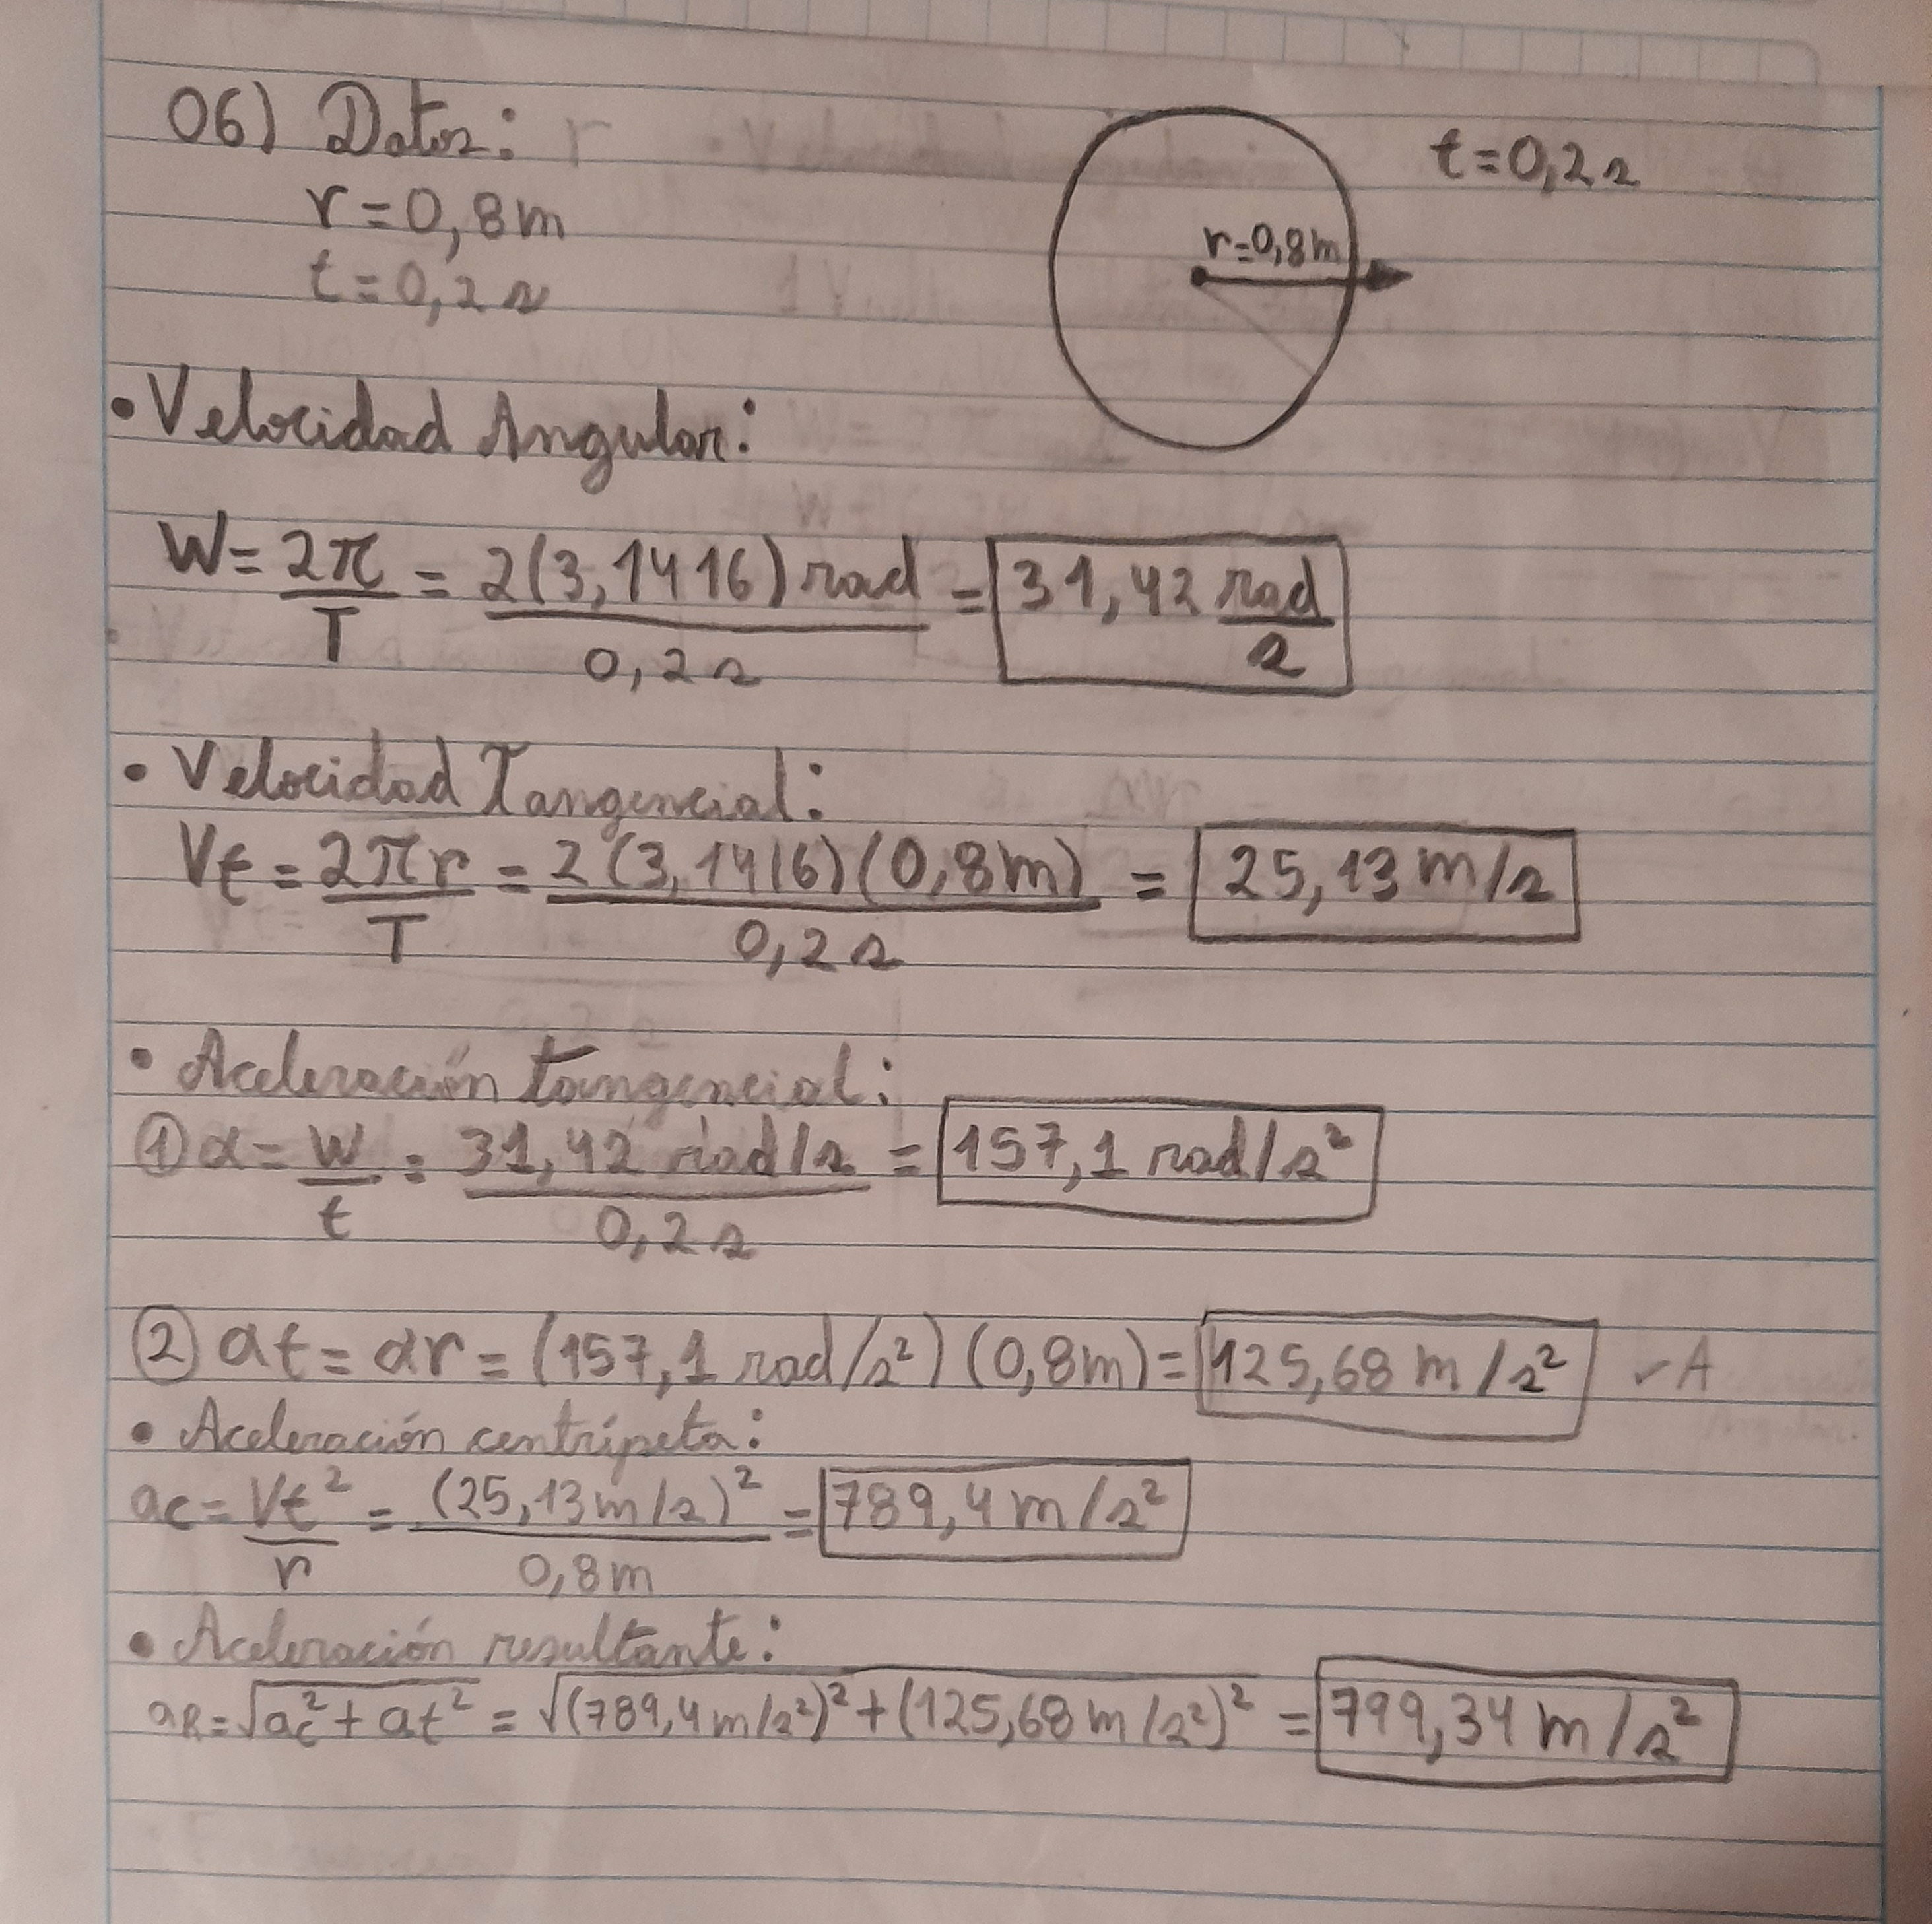 06) Datos: r
t=0,2s
r=0,8m
r=0,8m
t=0,2s
• Velocidad Angular:
W= 2π/T = 2(3,1416) rad/0,2s = 31,42 rad/s
• Velocidad Tangencial:
Vt = 2πr/T = 2(3,1416)(0,8m)/0,2s = 25,13 m/s
• Aceleración tangencial:
① α = W/t = 31,42 rad/s/0,2s = 157,1 rad/s²
② at = αr = (157,1 rad/s²) (0,8m) = 125,68 m/s² ✓A
• Aceleración centrípeta:
ac = Vt²/r = (25,13m/s)²/0,8m = 789,4 m/s²
• Aceleración resultante:
aR = √ac² + at² = √(789,4m/s²)² + (125,68m/s²)² = 799,34 m/s²